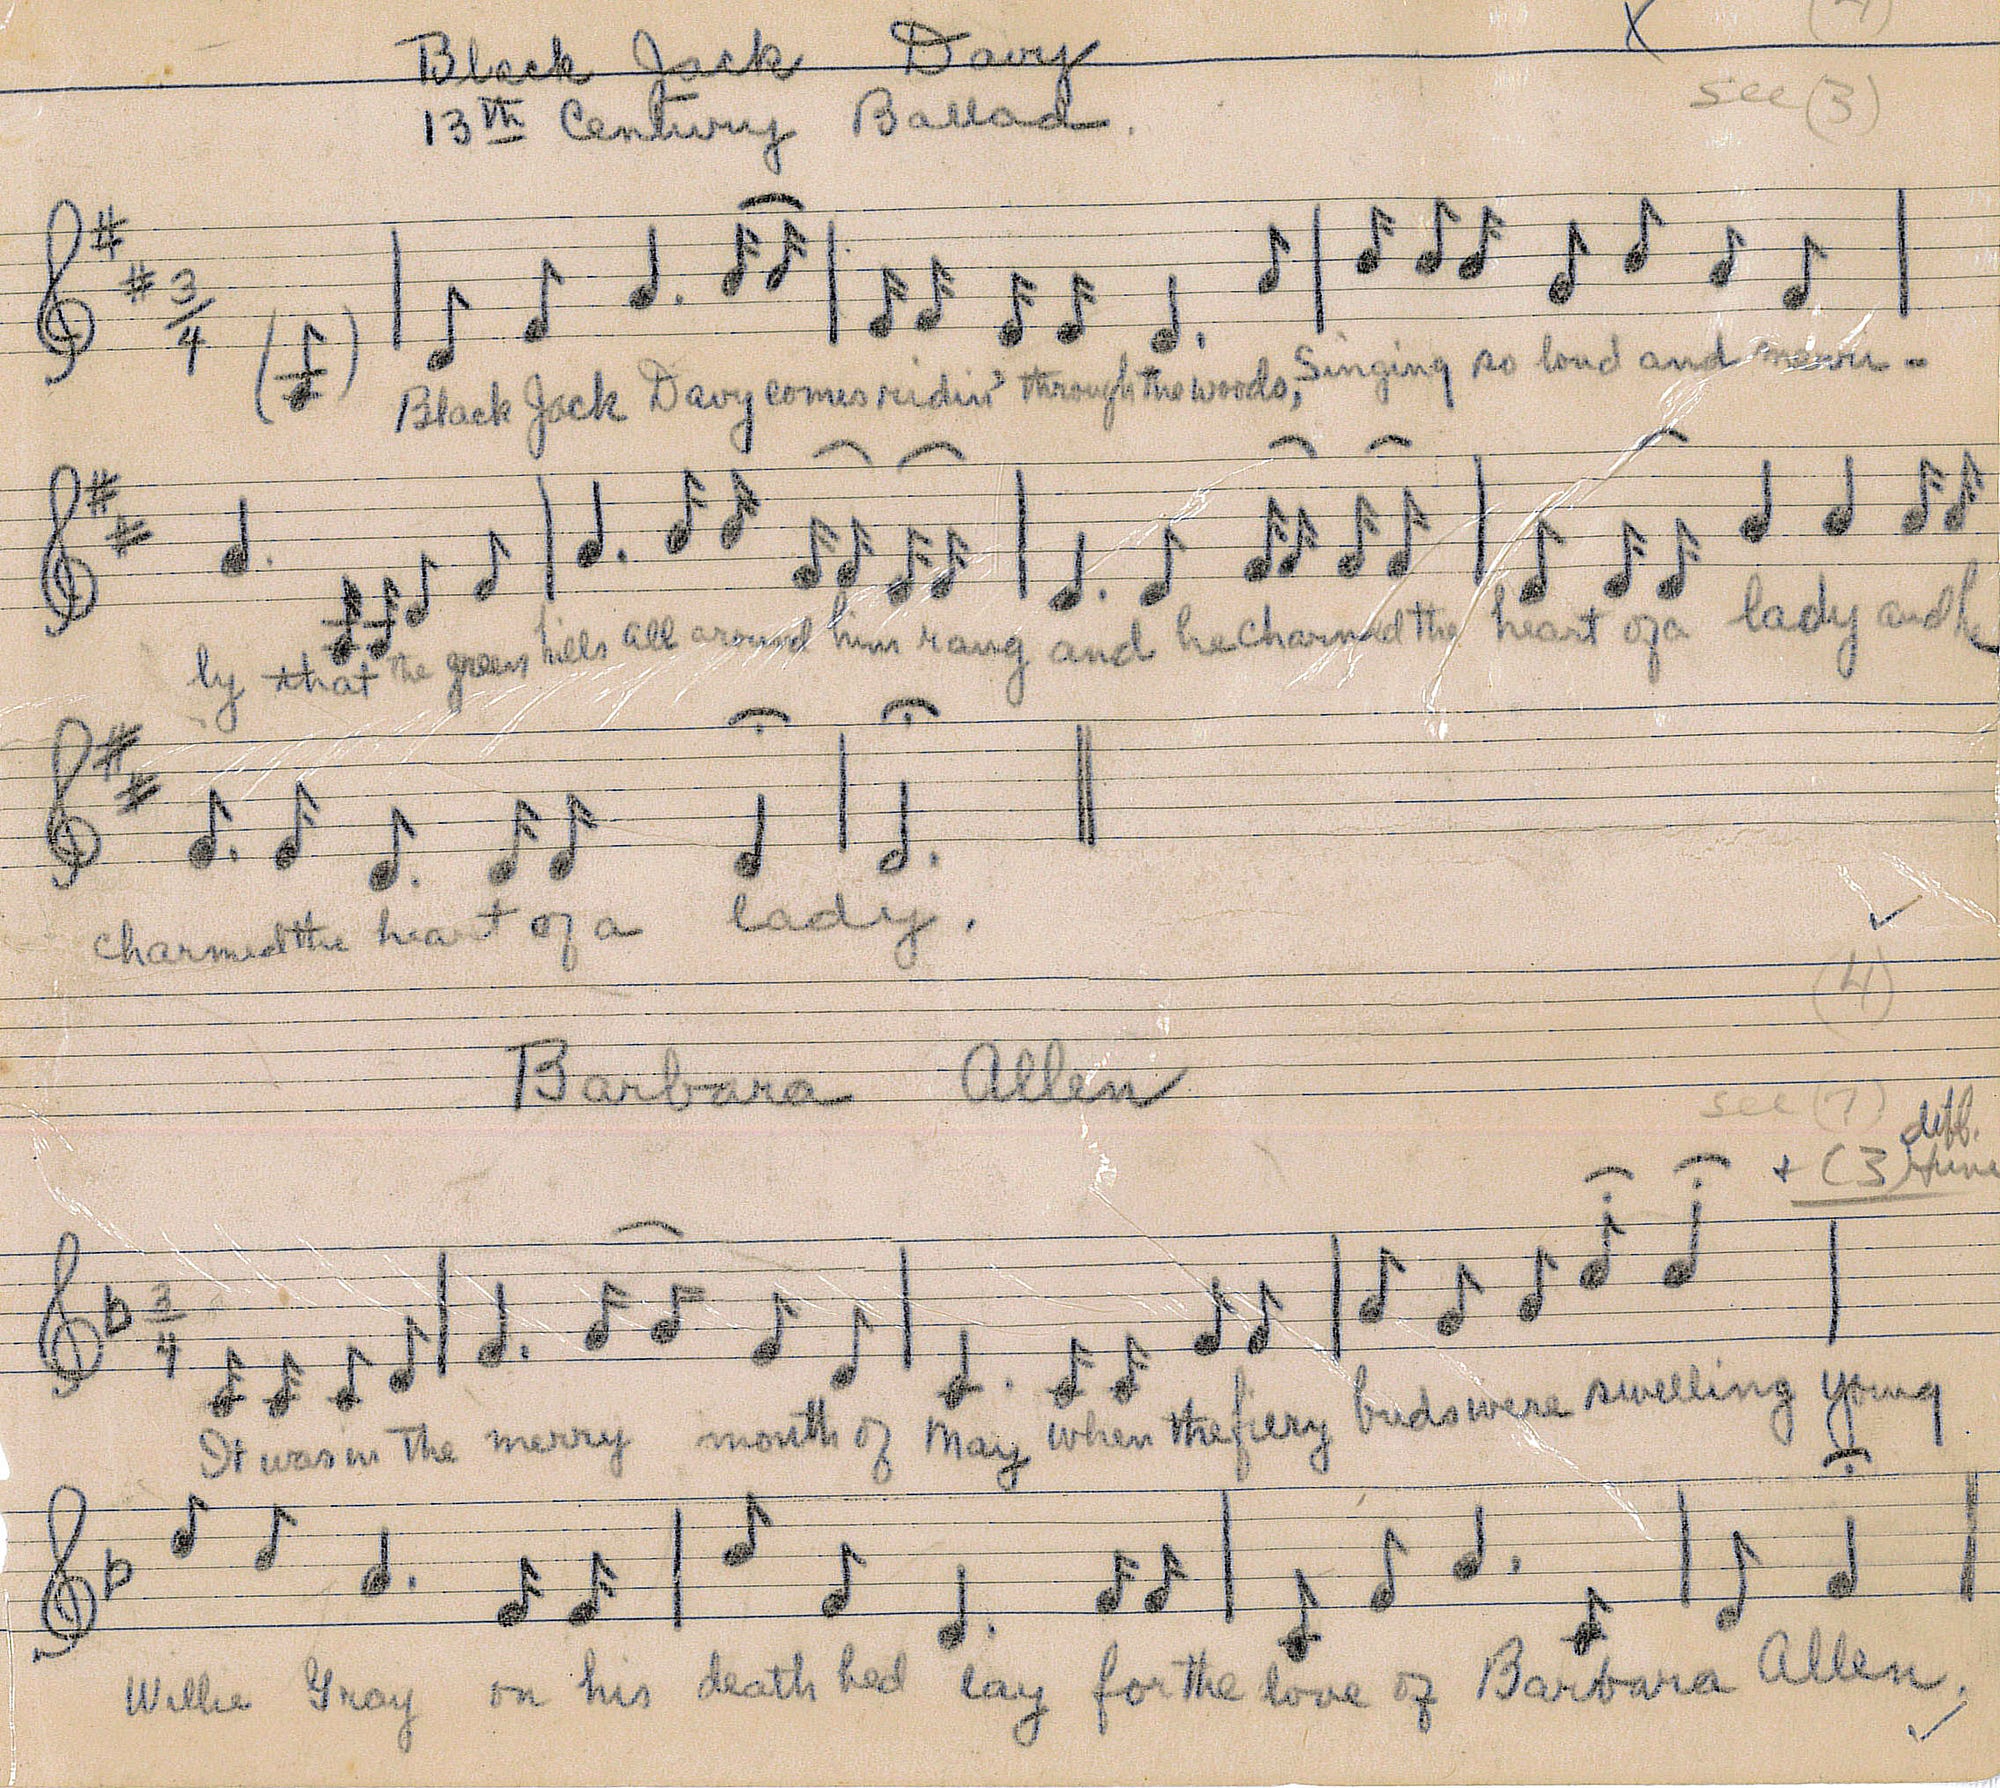 X (4)
Black Jack Davy
see (3)
13th Century Ballad.
3/4
Black Jack Davy comes ridin' through the woods, Singing so loud and merri-
ly that the green hills all around him rang and he charmed the heart of a lady and he
charmed the heart of a lady.
(4)
Barbara Allen
see (7)
diff.
+ (3) tune
3/4
It was in the merry month of May when the fiery buds were swelling young
Willie Gray on his death bed lay for the love of Barbara Allen.